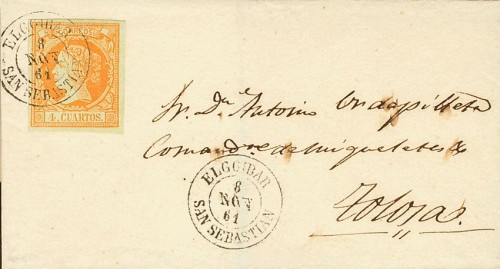 ELGOIBAR
8
NOV
61
SAN SEBASTIAN
4 CUARTOS.
Sr. Dn. Antonio Urdapilleta
Comandte. de miqueletes de
Tolosa.
ELGOIBAR
8
NOV
61
SAN SEBASTIAN